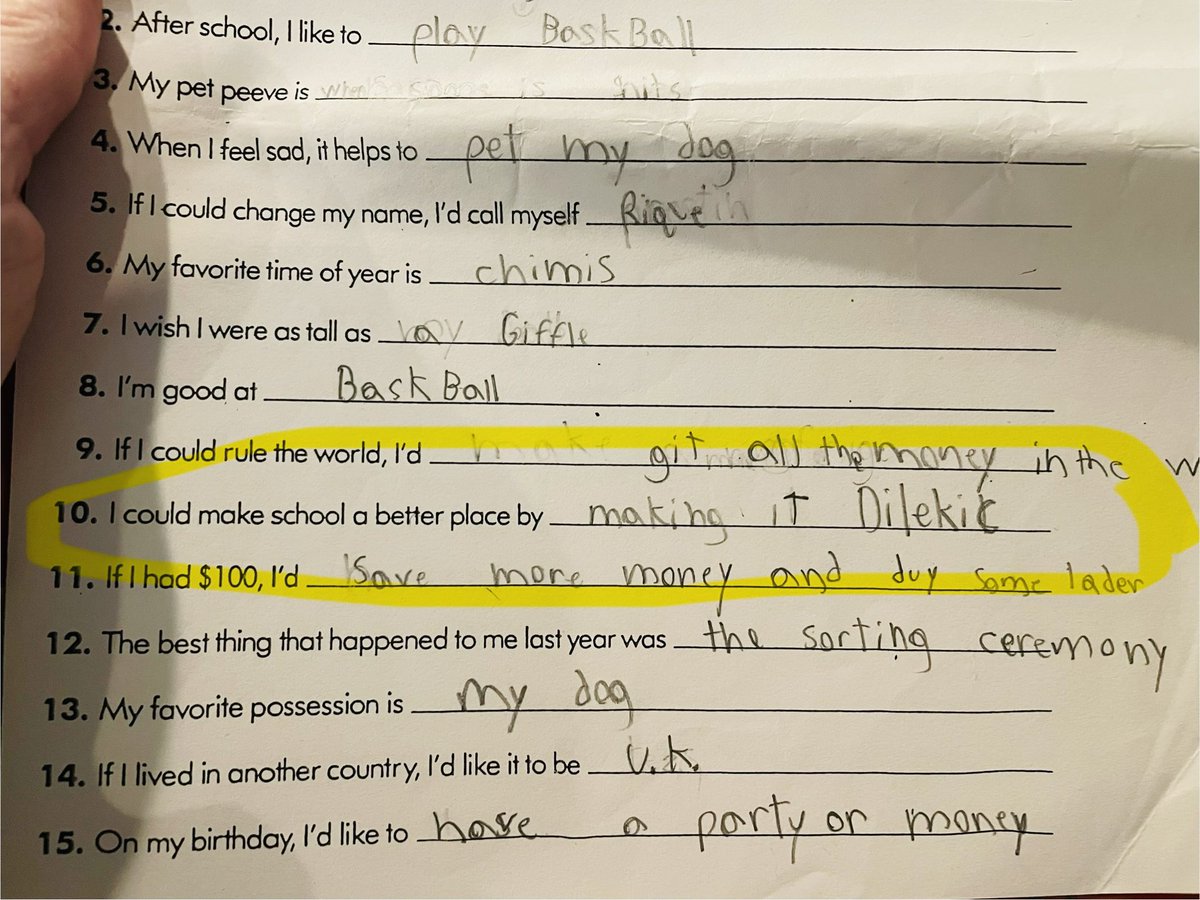 2. After school, I like to play BaskBall
3. My pet peeve is when is hits
4. When I feel sad, it helps to pet my dog
5. If I could change my name, I'd call myself Rique
6. My favorite time of year is chimis
7. I wish I were as tall as a Giffle
8. I'm good at BaskBall
9. If I could rule the world, I'd git all the money in the w
10. I could make school a better place by making it Dilekit
11. If I had $100, I'd Save more money and duy some lader
12. The best thing that happened to me last year was the sorting ceremony
13. My favorite possession is my dog
14. If I lived in another country, I'd like it to be U.K.
15. On my birthday, I'd like to have a party or money